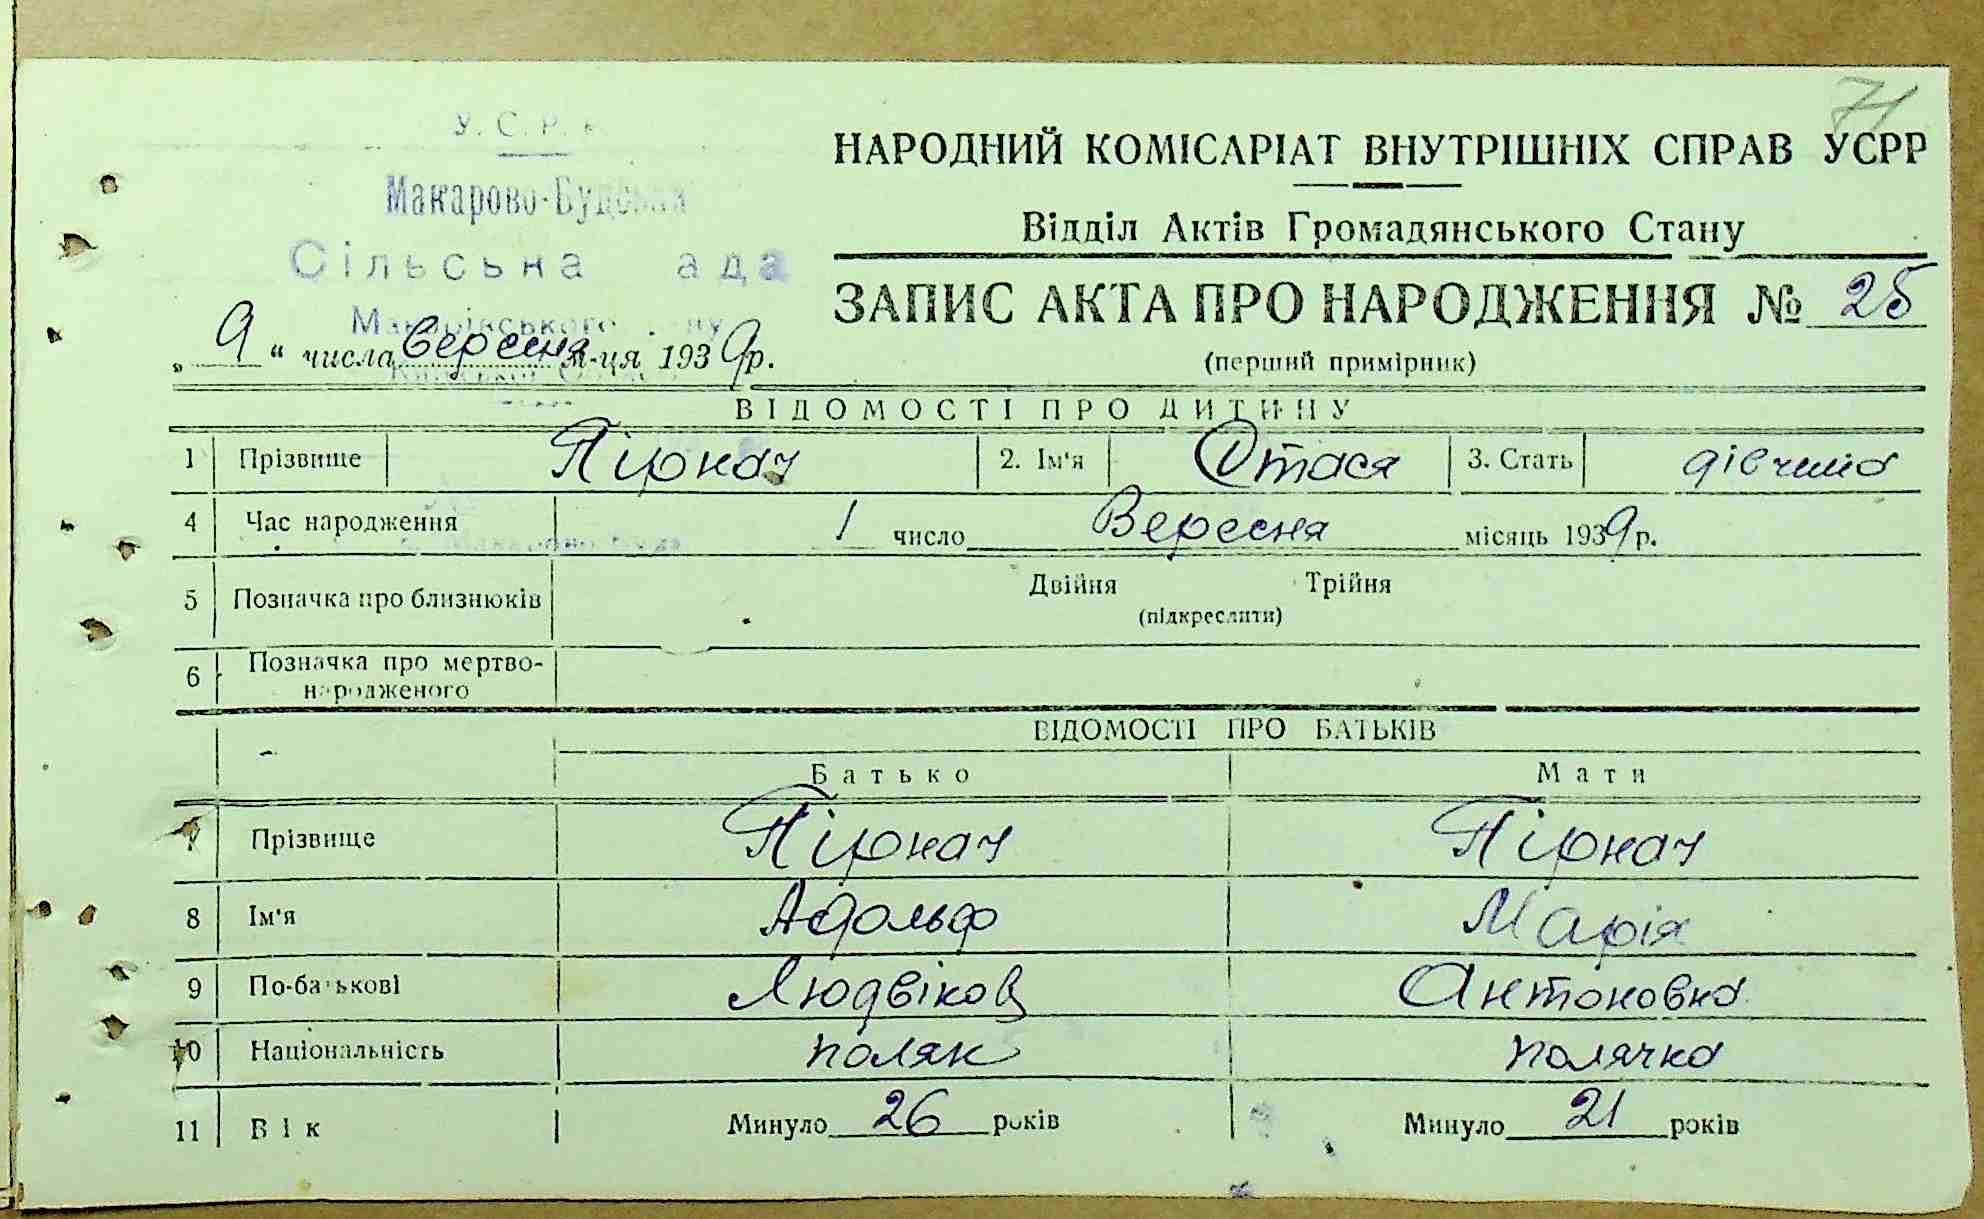 71
У. С. Р. Р.
НАРОДНИЙ КОМІСАРІАТ ВНУТРІШНІХ СПРАВ УСРР
Макарово-Будська
Відділ Актів Громадянського Стану
Сільська ада
ЗАПИС АКТА ПРО НАРОДЖЕННЯ № 25
„ 9 “ числа Вересня м-ця 1939р.
(перший примірник)
ВІДОМОСТІ ПРО ДИТИНУ
1 Прізвище Пірнач 2. Ім'я Стася 3. Стать дівчина
4 Час народження 1 число Вересня місяць 1939р.
5 Позначка про близнюків Двійня Трійня
(підкреслити)
6 Позначка про мертво-
народженого
ВІДОМОСТІ ПРО БАТЬКІВ
Батько Мати
7 Прізвище Пірнач Пірнач
8 Ім'я Адольф Марія
9 По-батькові Людвіков Антоновна
10 Національність поляк полячка
11 Вік Минуло 26 років Минуло 21 років